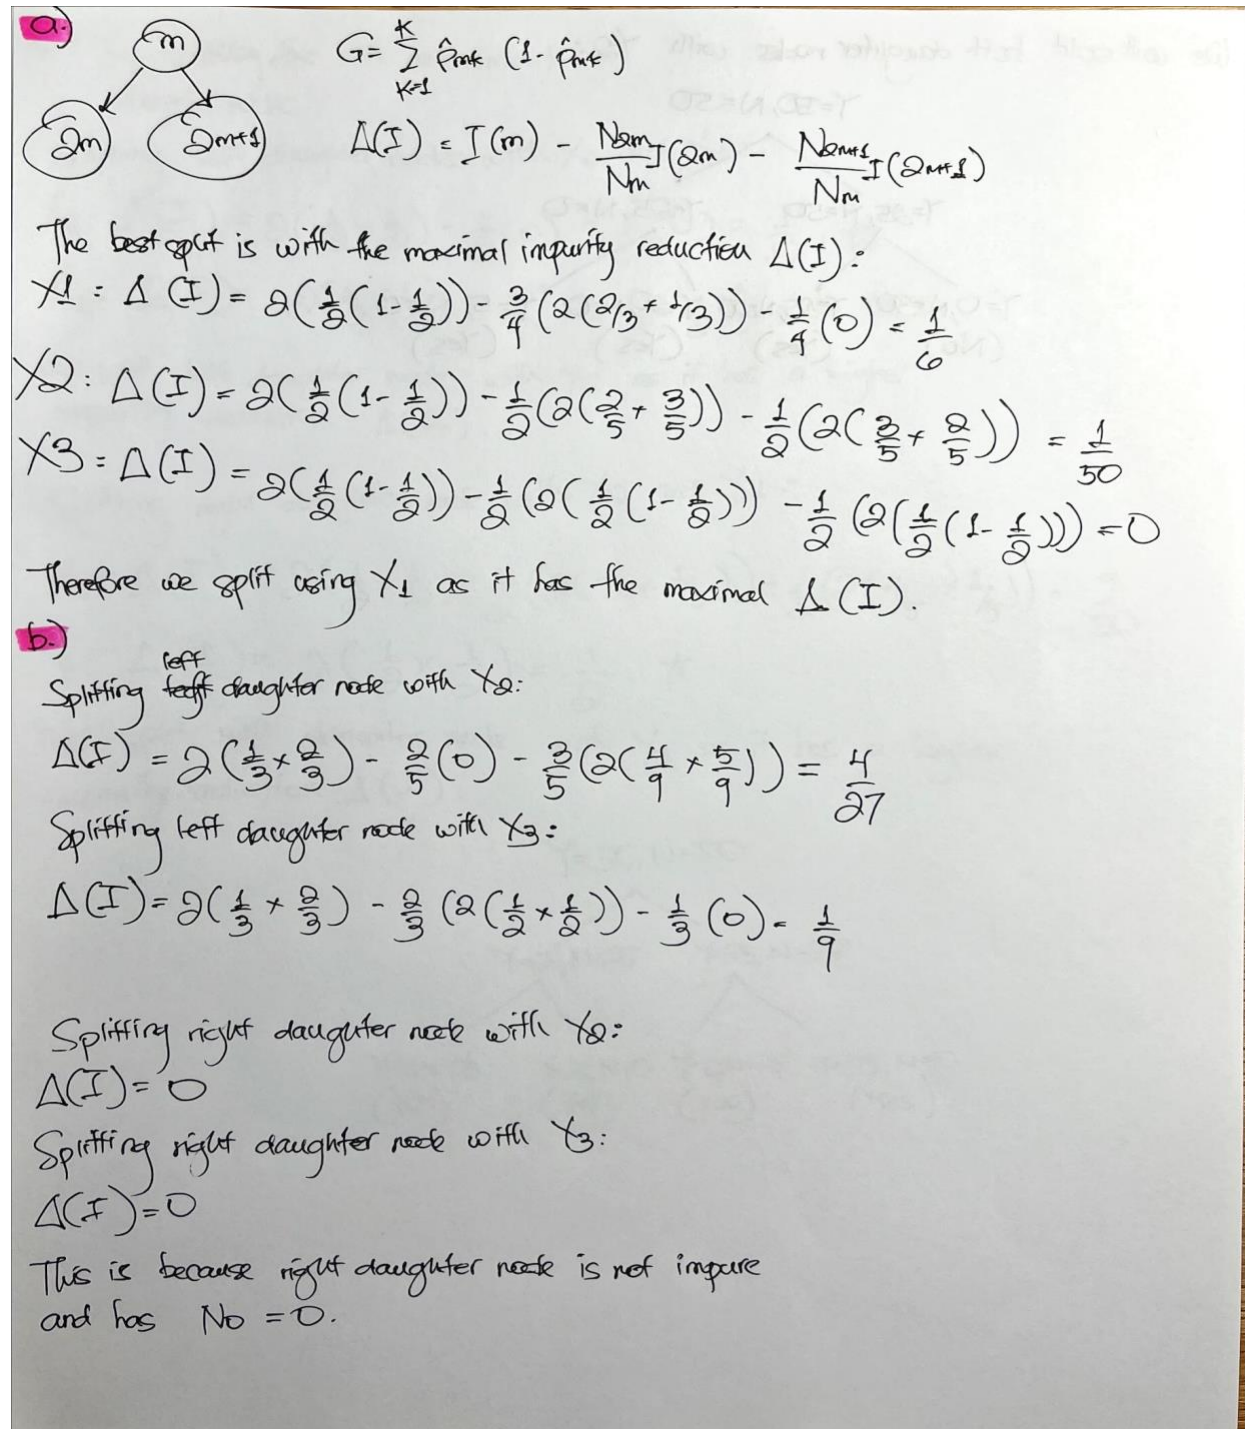 a.)
m
2m
2m+1
G = K Σ K=1 p̂mk (1 - p̂mk)
Δ(I) = I(m) - N2m/Nm I(2m) - N2m+1/Nm I(2m+1)
The best split is with the maximal impurity reduction Δ(I):
X1 : Δ (I) = 2(1/2(1-1/2)) - 3/4(2(2/3 + 1/3)) - 1/4(0) = 1/6
X2 : Δ(I) = 2(1/2(1-1/2)) - 1/2(2(2/5 + 3/5)) - 1/2(2(3/5 + 2/5)) = 1/50
X3 = Δ(I) = 2(1/2(1-1/2)) - 1/2(2(1/2(1-1/2))) - 1/2(2(1/2(1-1/2))) = 0
Therefore we split using X1 as it has the maximal Δ(I).
b.)
left
Splitting daughter node with X2:
Δ(I) = 2(1/3 × 2/3) - 2/5(0) - 3/5(2(4/9 × 5/9)) = 4/27
Splitting left daughter node with X3:
Δ(I) = 2(1/3 × 2/3) - 2/3(2(1/2 × 1/2)) - 1/3(0) = 1/9
Splitting right daughter node with X2:
Δ(I) = 0
Splitting right daughter node with X3:
Δ(I) = 0
This is because right daughter node is not impure
and has No = 0.